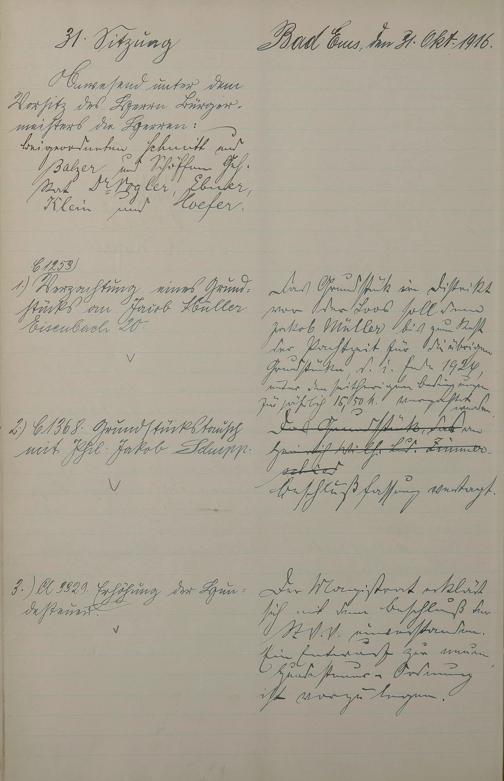 31. Sitzung
Bad Ems, den 31. Okt. 1916.
Anwesend unter dem
Vorsitz des Herrn Bürger-
meisters die Herren:
Beigeordneten Schmitt und
Balzer und Schöffen Geh.
Rat Dr. Vogler, Ebner,
Klein und Hoefer.
C 1253)
1.) Verpachtung eines Grund-
stücks an Jacob Müller
Eisenbach 20
Das Grundstück im Distrikt
vor der Loos soll dem
Jakob Müller bis zum Rest
der Pachtzeit für die übrigen
Grundstücke, d. i. Ende 1924,
unter den seitherigen Bedingungen
zu jährlich 15,50 M. verpachtet
werden
2.) C 1368. Grundstückstausch
mit Phil. Jakob Schupp.
Das Grundstück, das an
Beschlußfassung vertagt.
3.) A 9929 Erhöhung der Hun-
desteuer.
Der Magistrat erklärt
sich mit dem Beschluß der
St.V.V. einverstanden.
Ein Entwurf zur neuen
Hundesteuer-Ordnung
ist vorzulegen.